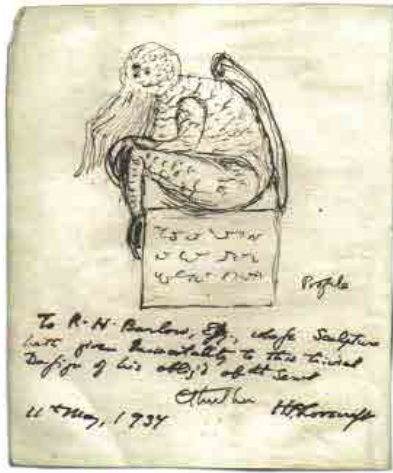 Profile
To R. H. Barlow, Esq., whose Sculpture
hath given Immortality to this trivial
Design of his oblig'd obt Servt
Cthulhu
11th May, 1934 H P Lovecraft